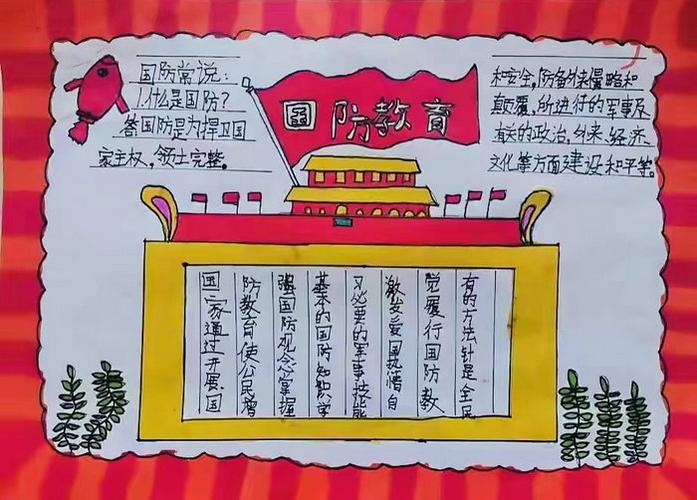 国防教育
国防常说：
1.什么是国防？
答国防是为捍卫国
家主权，领土完整。
和安全，防备外来侵略和
颠覆，所进行的军事及
有关的政治，外来、经济、
文化等方面建设和平等。
国家通过开展国
防教育使公民增
强国防观念掌握
基本的国防知识学
习必要的军事技能
激发爱国热情自
觉履行国防教
有的方法针是全民